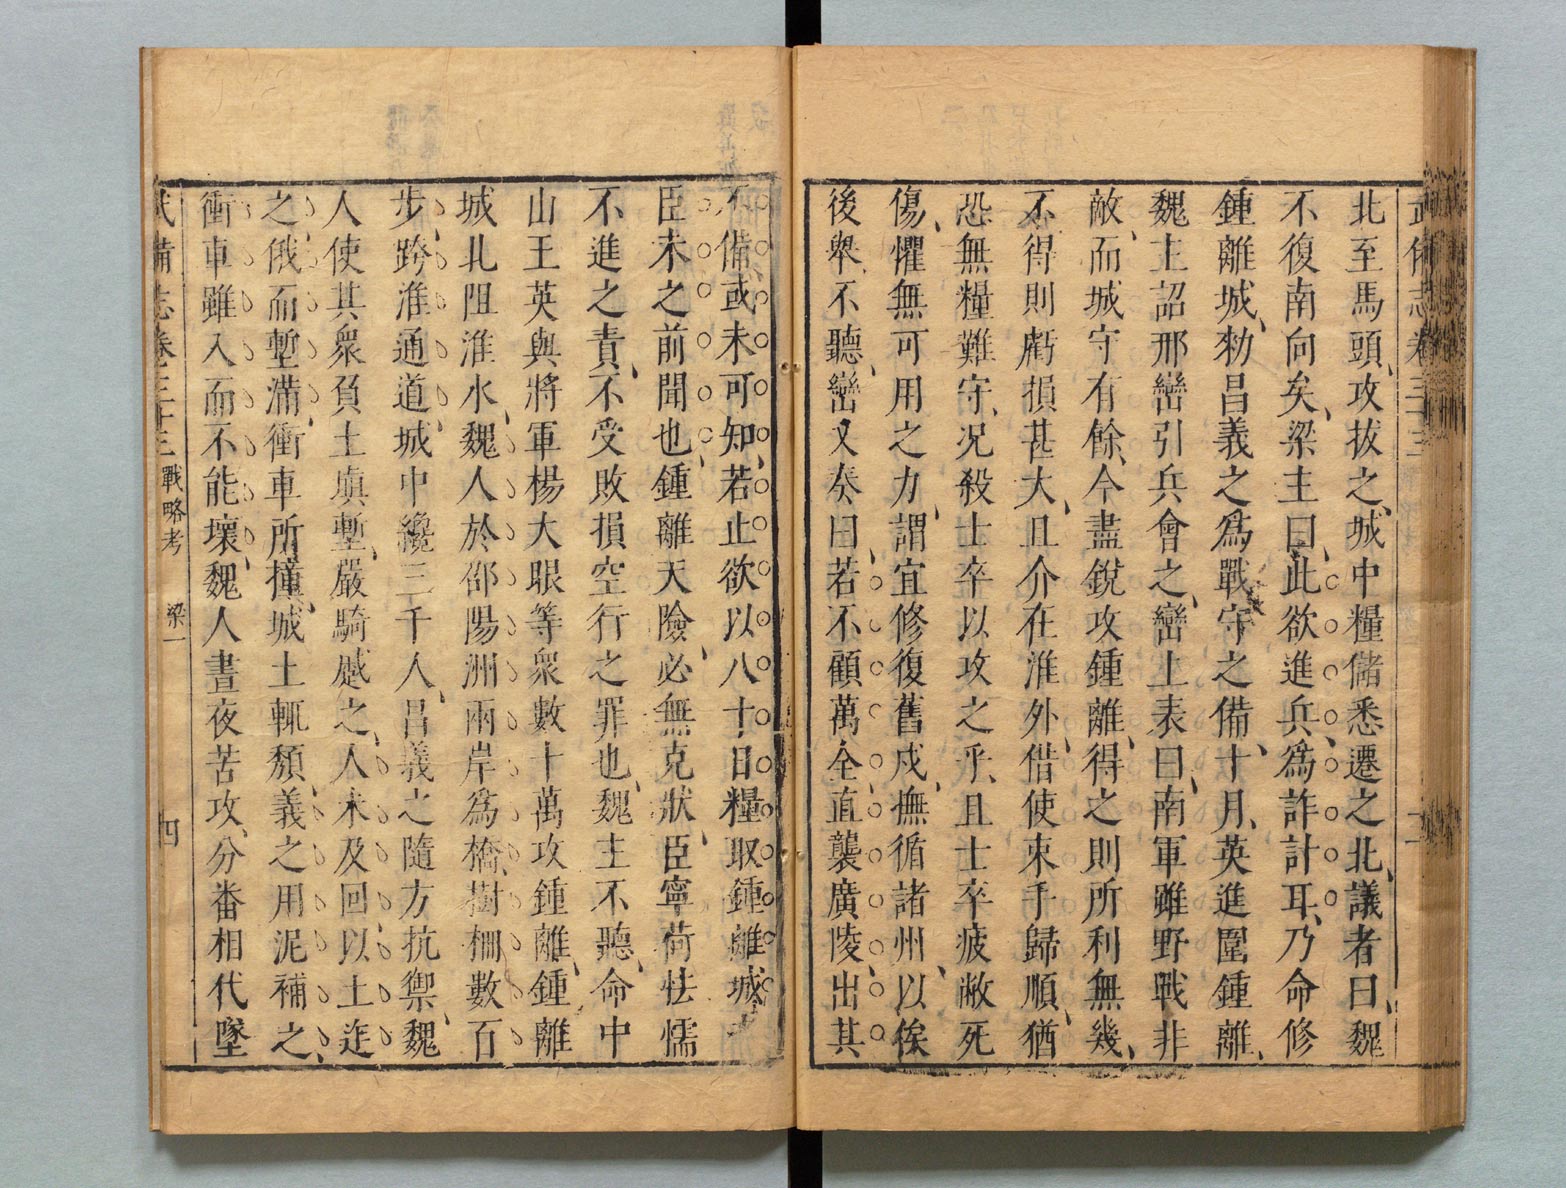 武備志卷三十三
北至馬頭、攻拔之、城中糧儲悉遷之北、議者曰、魏
不復南向矣、梁主曰、此欲進兵、爲詐計耳、乃命修
鍾離城、勑昌義之爲戰守之備、十月、英進圍鍾離、
魏主詔邢巒引兵會之、巒上表曰、南軍雖野戰非
敵、而城守有餘、今盡銳攻鍾離、得之則所利無幾、
不得則虧損甚大、且介在淮外、借使束手歸順、猶
恐無糧難守、况殺士卒以攻之乎、且士卒疲敝死
傷、懼無可用之力、謂宜修復舊戍、撫循諸州、以俟
後舉、不聽、巒又奏曰、若不顧萬全、直襲廣陵、出其
不備、或未可知、若止欲以八十日糧取鍾離城
臣未之前聞也、鍾離天險、必無克狀、臣寧荷怯懦
不進之責、不受敗損空行之罪也、魏主不聽、命中
山王英與將軍楊大眼等衆數十萬攻鍾離、鍾離
城北阻淮水、魏人於邵陽洲兩岸爲橋、樹柵數百
步、跨淮通道、城中纔三千人、昌義之隨方抗禦、魏
人使其衆負土填塹、嚴騎蹙之、人未及回、以土迮
之、俄而塹滿、衝車所撞、城土輒頽、義之用泥補之、
衝車雖入而不能壞、魏人晝夜苦攻、分番相代墜
武備志卷三十三 戰略考 梁一 四